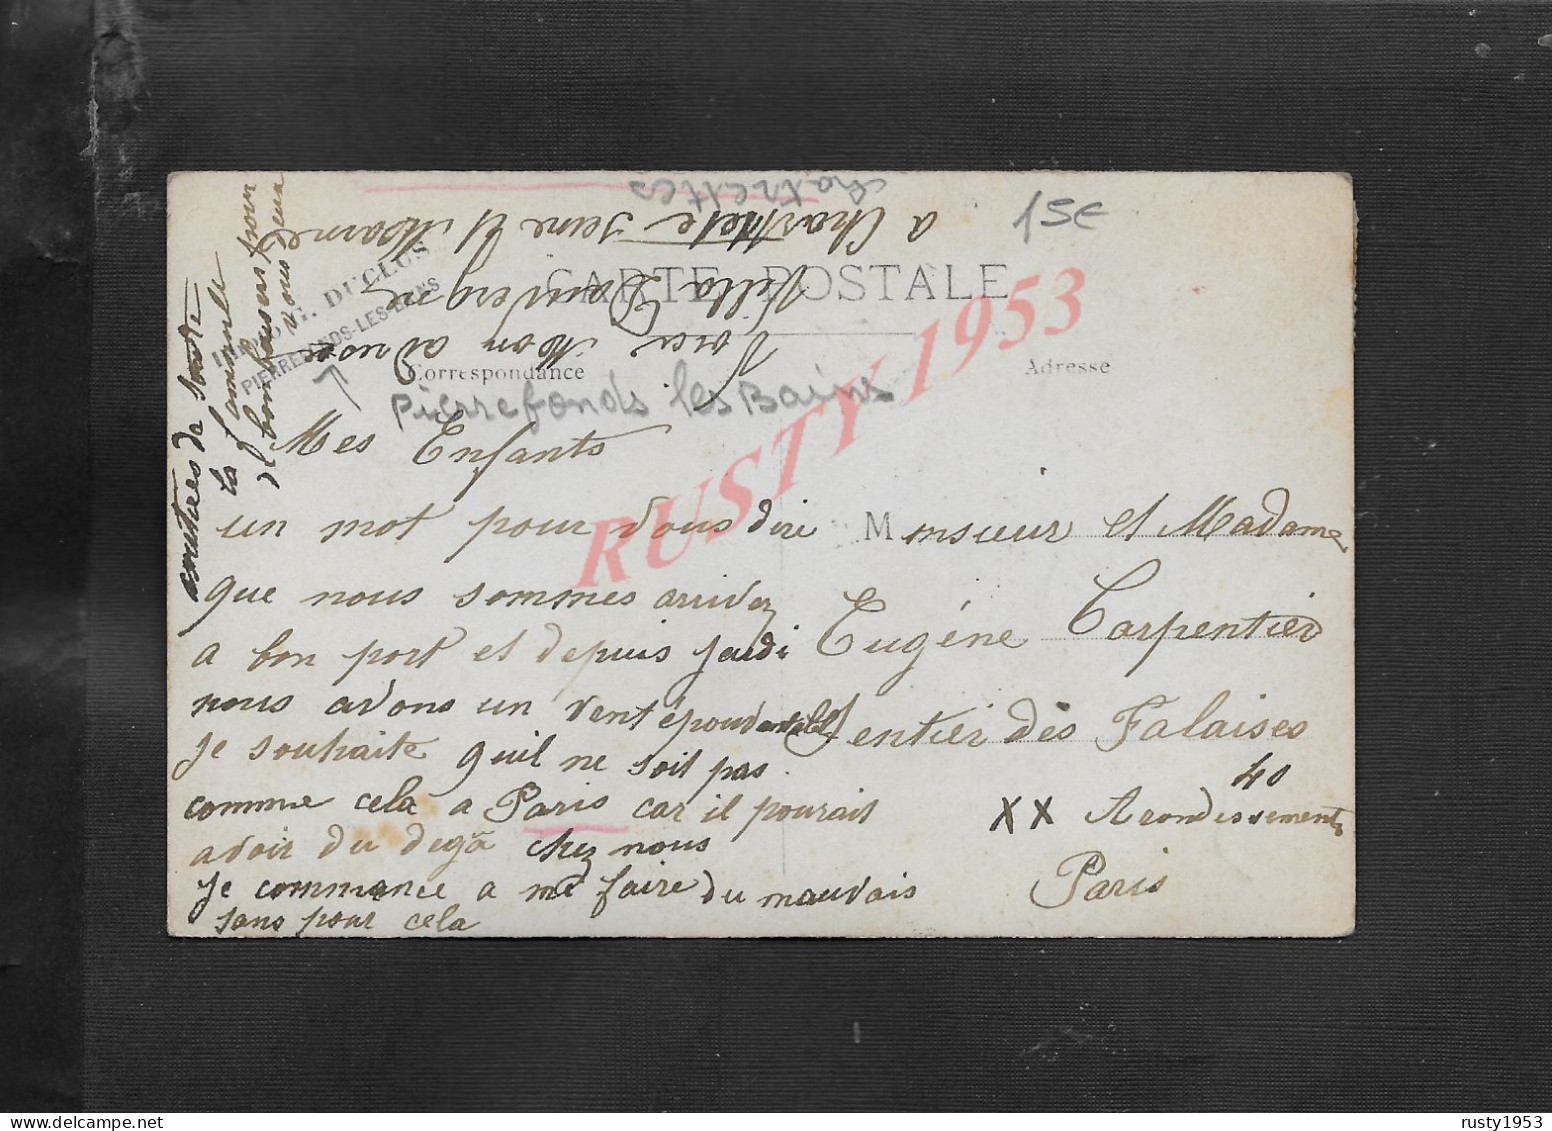 CARTE POSTALE
Correspondance
Adresse
15€
chatrettes
DUCLOS
PIERREFONDS-LES-BAINS
Pierrefonds les Bains
RUSTY 1953
Voici Mon adresse
Villa
a Chartrete Seine et Marne
Mes Enfants
un mot pour vous dire
que nous sommes arrivez
a bon port et depuis jeudi
nous avons un vent épouvantable
je souhaite quil ne soit pas
comme cela a Paris car il pourait
avoir du degâ chez nous
je commence a me faire du mauvais
sans pour cela
amitiées de toute
la famille
et bon baisers pour
vous deux
Monsieur et Madame
Eugéne Carpentier
Sentier des Falaises
40
XX Arondissements
Paris
rusty1953